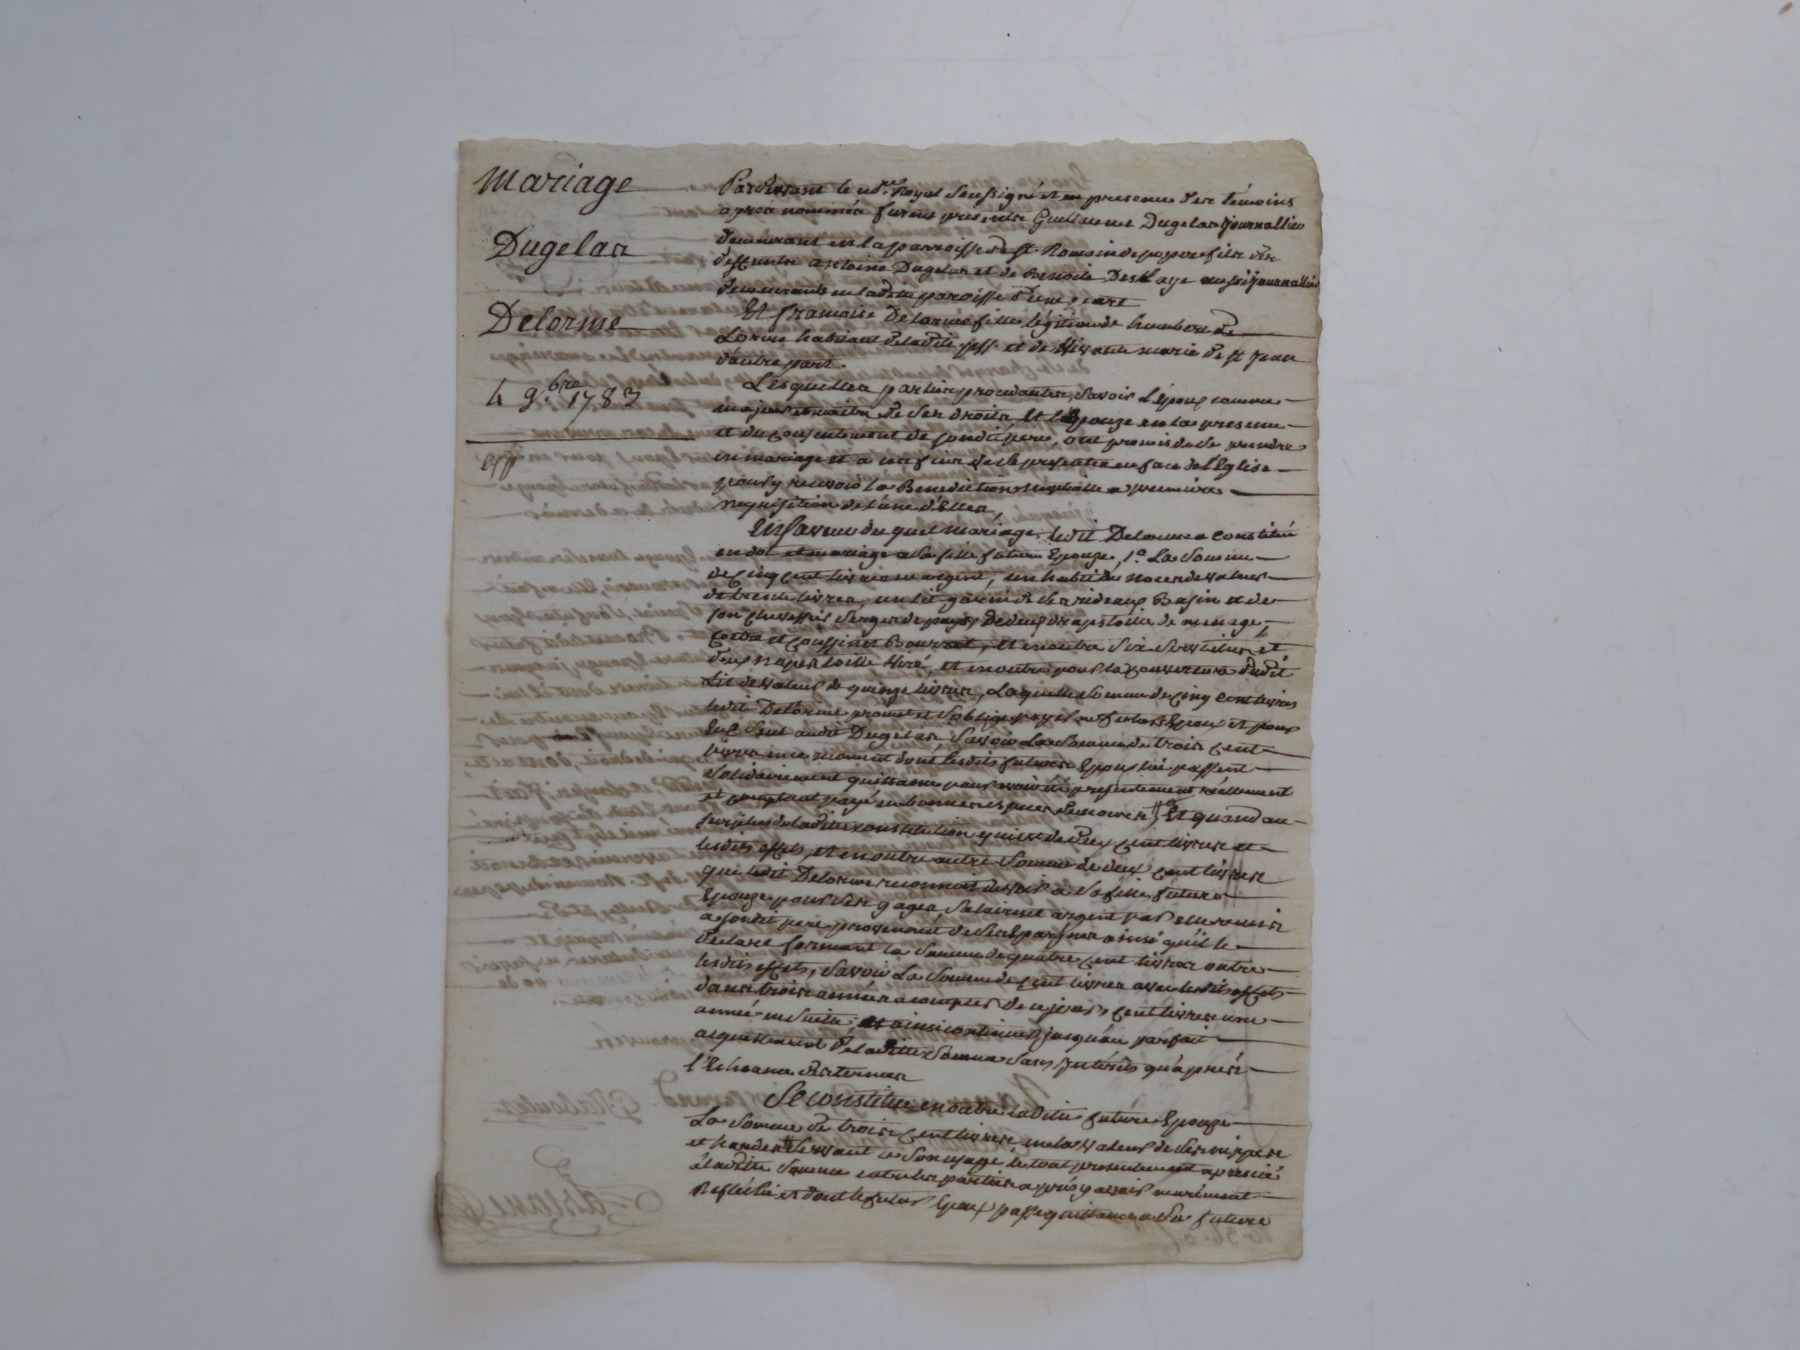 Mariage
Dugelas
Delorme
4 9.bre 1783
exp
Pardevant le no.re Royal soussigné et en presence des temoins
après nommés furent présents Guillaume Dugelas journallier
demeurant en la parroisse de st Romain de popue fils des
deffunts Antoine Dugelas et de Benoite Deshaye aussi journallier
demeurants en ladite paroisse d'une part
Et françoise Delorme fille légitime de humbert de
Lorme habitant de ladite pss. et de marie de st jean
d'autre part.
Lesquelles parties procedantes, savoir L'époux comme
majeur et maitre de ses droits, Et l'épouze en la presence
et du consentement de sondit pere, ont promis de se prendre
en mariage et a ces fins de se presenter en face de l'Eglise
pour y recevoir la Benediction nuptialle a premiere
requisition de l'une d'Elles,
En faveur du quel mariage, ledit Delorme a constitué
en dot et mariage a sa fille future Epouze, 1.° La somme
de cinq cent livres en argent, un habit de noces de valeur
de trente livres, un lit garni de ses rideaux Basin et de
son chevet serge de pays, de deux draps toille de menage,
et coussin et en outre six serviettes et
deux napes toille et en outre pour la couverture dudit
Lit de valeur de quinze livres, Laquelle somme de cinq cent livres
ledit Delorme promet et s'oblige payer aux futurs Epoux et pour
Eux seul audit Dugelas, savoir La somme de trois cent
livres en ce moment dont lesdits futurs Epoux lui passent
solidairement quittance pour avoir été presentement réellement
et comptant payé en bonnes especes de cours, Et quand au
surplus de ladite constitution qui est de deux cent livres et
lesdits effets, et en outre autre somme de deux cent livres
que ledit Delorme reconnoit devoir a sa fille future
Epouze pour ses gages, salaires et argent par elle remis
a sondit pere provenant de ses Epargnes ainsi qu'il le
declare formant la somme de quatre cent livres outre
lesdits effets, savoir La somme de cent livres avec lesdits effets
dans trois années a compter de ce jour, cent livres une
année en suitte et ainsi continuer jusqu'au parfait
acquittement de ladite somme sans interets qu'après
l'Echeance des termes
Se constitue en outre ladite future Epouze
La somme de trois cent livres en la valeur de ses nippes
et hardes servant a son usage le tout presentement apprecié
a ladite somme entre les parties après y avoir murement
Reflechi et dont le futur Epoux passe quittance a sa future